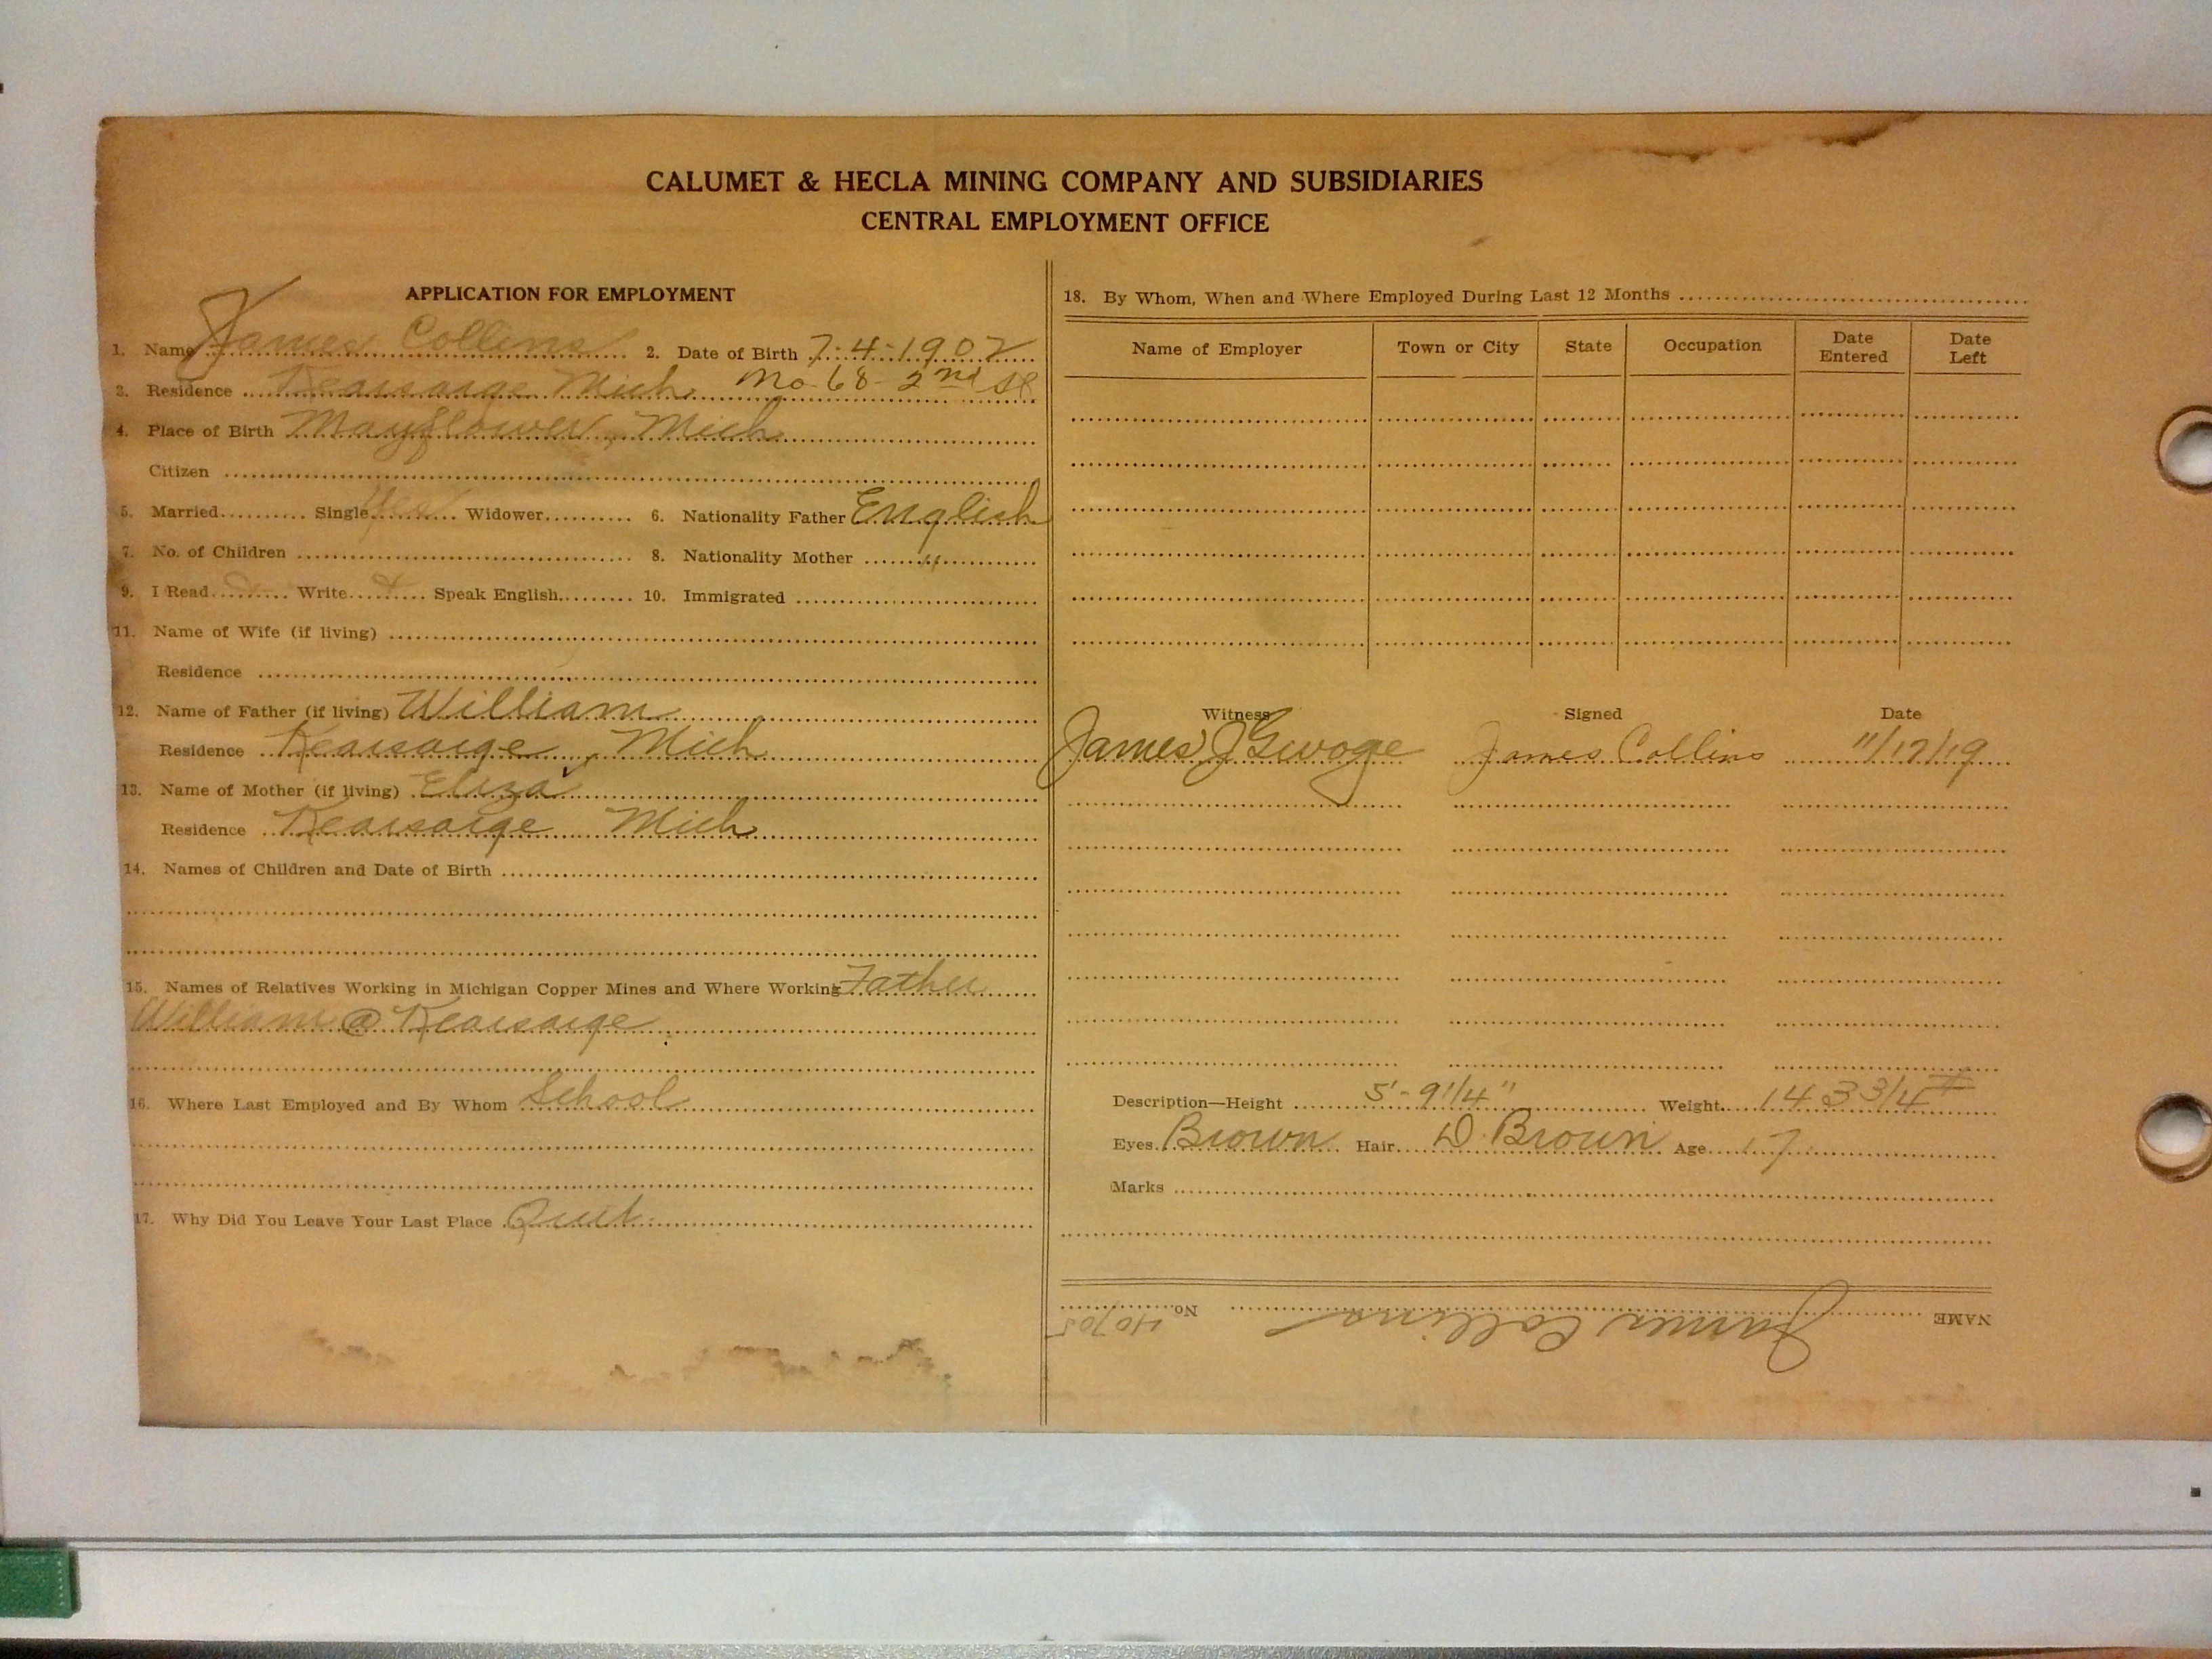 CALUMET & HECLA MINING COMPANY AND SUBSIDIARIES
CENTRAL EMPLOYMENT OFFICE
APPLICATION FOR EMPLOYMENT
1. Name James Collins 2. Date of Birth 7-4-1902
3. Residence Kearsarge Mich No 68- 2nd St
4. Place of Birth Mayflower, Mich
Citizen
5. Married Single Yes Widower 6. Nationality Father English
7. No. of Children 8. Nationality Mother "
9. I Read Write Speak English 10. Immigrated
11. Name of Wife (if living)
Residence
12. Name of Father (if living) William
Residence Kearsarge, Mich
13. Name of Mother (if living) Eliza
Residence Kearsarge Mich
14. Names of Children and Date of Birth
15. Names of Relatives Working in Michigan Copper Mines and Where Working Father
William @ Kearsarge
16. Where Last Employed and By Whom School
17. Why Did You Leave Your Last Place Quit
18. By Whom, When and Where Employed During Last 12 Months
Name of Employer Town or City State Occupation Date Entered Date Left
Witness Signed Date
James J James Collins 11/17/19
Description—Height 5'-9 1/4" Weight 143 3/4 #
Eyes Brown Hair D. Brown Age 17
Marks
NAME James Collins No. 40705